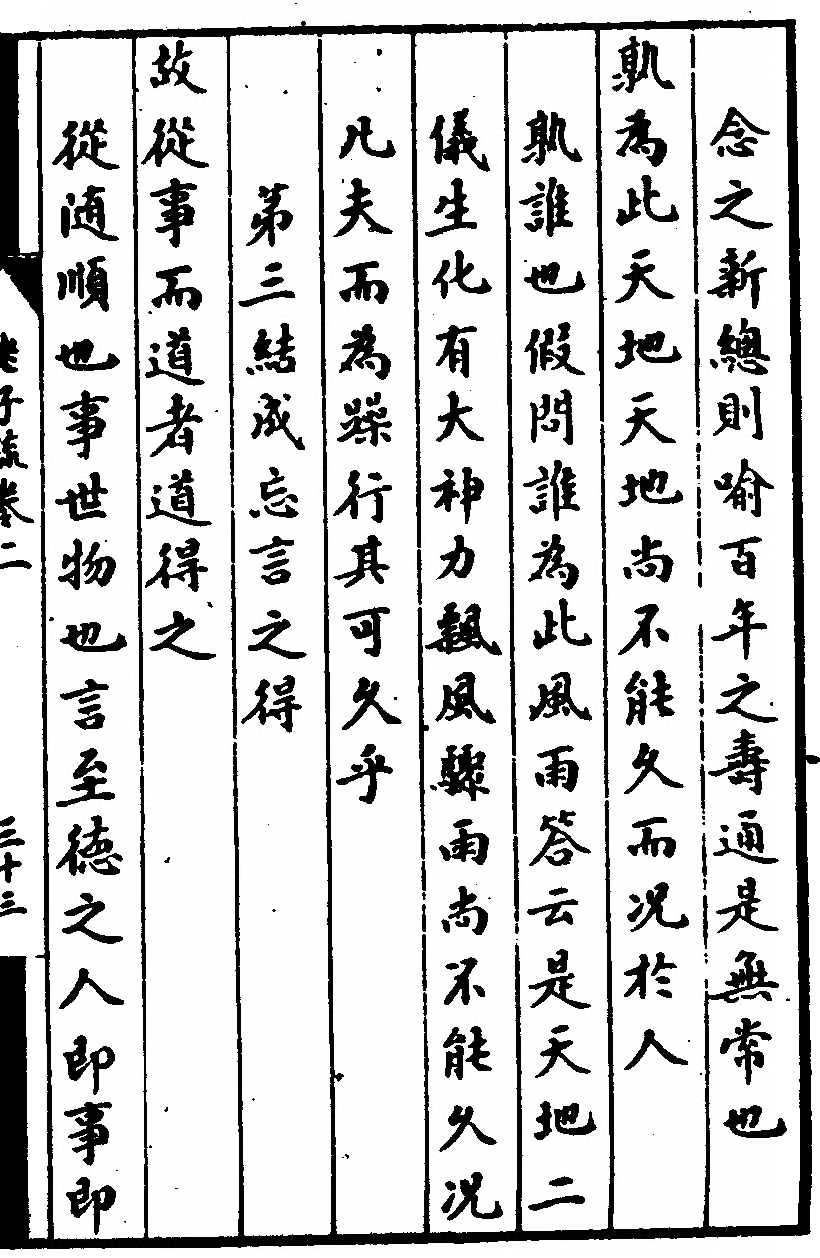 念之新總則喻百年之壽通是無常也
孰為此天地天地尚不能久而况於人
孰誰也假問誰為此風雨答云是天地二
儀生化有大神力飄風驟雨尚不能久况
凡夫而為躁行其可久乎
第三結成忘言之得
故從事而道者道得之
從随順也事世物也言至徳之人即事即
老子疏卷二
三十三